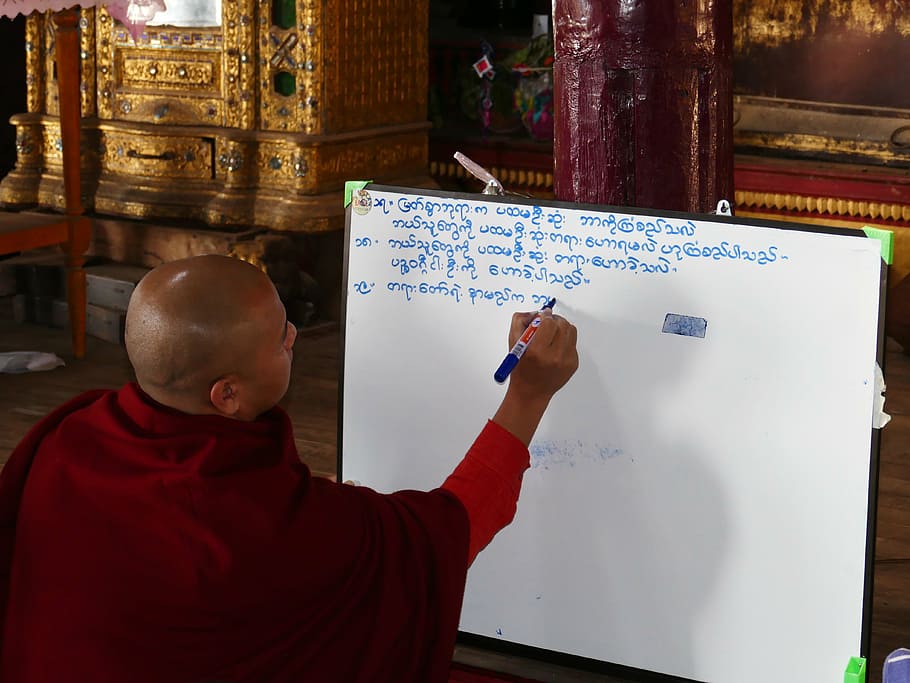 ၁၇။ မြတ်စွာဘုရားက ပထမဦးဆုံး ဘာကိုကြံစည်သလဲ
ဘယ်သူတွေကို ပထမဦးဆုံးတရားဟောရမလဲ ဟုကြံစည်ပါသည်။
၁၈။ ဘယ်သူတွေကို ပထမဦးဆုံး တရားဟောခဲ့သလဲ။
ပဥ္စဝဂ္ဂီငါးဦးကို ဟောခဲ့ပါသည်။
၁၉။ တရားတော်ရဲ့ နာမည်က ဘ